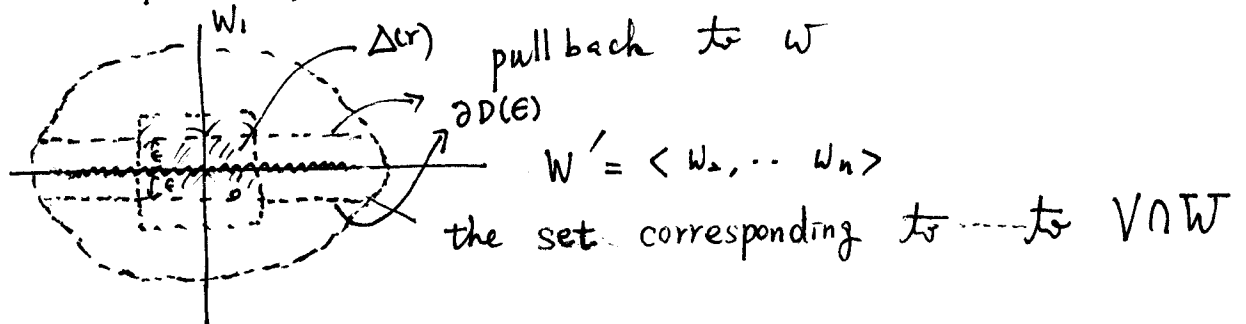 W₁
Δ(r)
pull back to w
∂D(ε)
ε
ε
W' = < w₂, ·· wₙ >
the set corresponding to ---- to V∩W